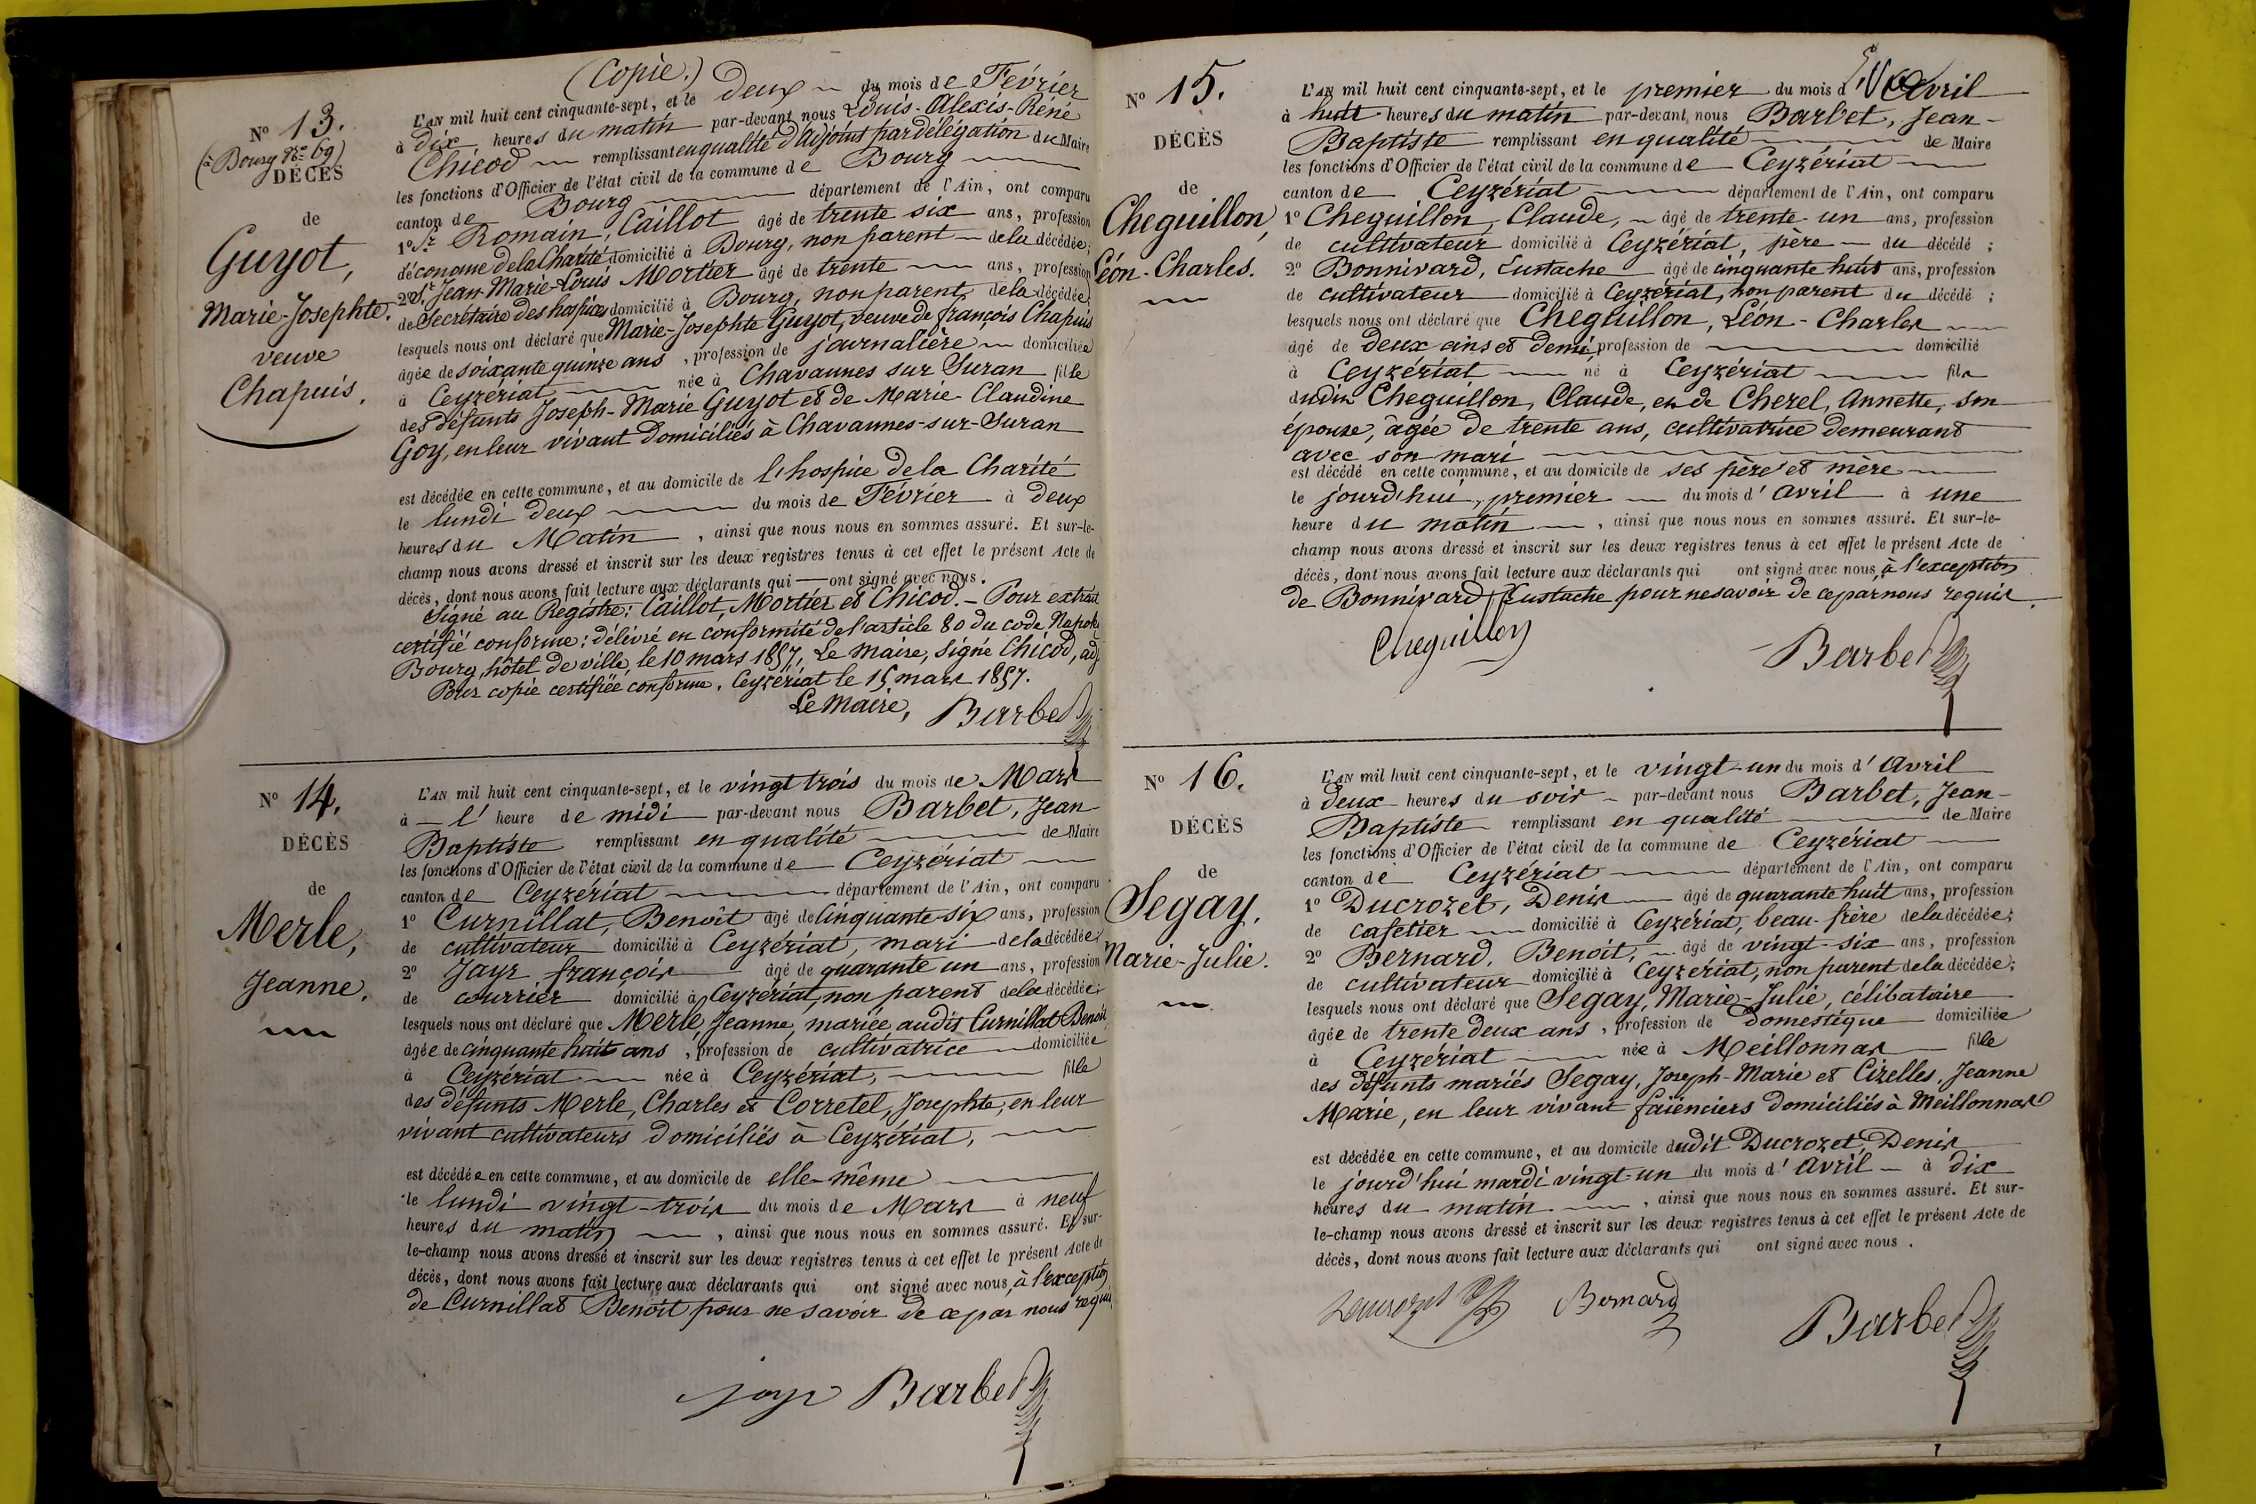 (Copie.)
N° 13.
(à Bourg N° 69)
DÉCÈS
de
Guyot,
Marie-Josephte.
veuve
Chapuis.
L'AN mil huit cent cinquante-sept, et le deux du mois de Février
à dix heures du matin par-devant nous Louis-Alexis-Réné
Chicod remplissant en qualité d'adjoint par délégation du Maire
les fonctions d'Officier de l'état civil de la commune de Bourg
canton de Bourg département de l'Ain, ont comparu
1° Sr Romain, Caillot âgé de trente six ans, profession
d'économe de la Charité domicilié à Bourg, non parent de la décédée;
2° Sr Jean-Marie-Louis Mortier âgé de trente ans, profession
de Secrétaire des hospices domicilié à Bourg, non parent de la décédée;
lesquels nous ont déclaré que Marie-Josephte Guyot, veuve de françois Chapuis
âgée de soixante quinze ans, profession de journalière domiciliée
à Ceyzériat née à Chavannes sur Suran fille
des défunts Joseph-Marie Guyot et de Marie Claudine
Goy, en leur vivant domiciliés à Chavannes-sur-Suran
est décédée en cette commune, et au domicile de l'hospice de la Charité
le lundi deux du mois de Février à deux
heures du Matin, ainsi que nous nous en sommes assuré. Et sur-le-
champ nous avons dressé et inscrit sur les deux registres tenus à cet effet le présent Acte de
décès, dont nous avons fait lecture aux déclarants qui ont signé avec nous.
Signé au Registre: Caillot, Mortier et Chicod. - Pour extrait
certifié conforme: délivré en conformité de l'article 80 du code Napol
Bourg, hôtel de ville, le 10 mars 1857, Le Maire, signé Chicod, adj
Pour copie certifiée conforme. Ceyzériat le 15 mars 1857.
Le Maire, Barbet
N° 14.
DÉCÈS
de
Merle,
Jeanne.
L'AN mil huit cent cinquante-sept, et le vingt trois du mois de Mars
à l' heure de midi par-devant nous Barbet, Jean
Baptiste remplissant en qualité de Maire
les fonctions d'Officier de l'état civil de la commune de Ceyzériat
canton de Ceyzériat département de l'Ain, ont comparu
1° Curnillat, Benoît âgé de Cinquante six ans, profession
de cultivateur domicilié à Ceyzériat, mari de la décédée;
2° Jayr françois âgé de quarante un ans, profession
de courrier domicilié à Ceyzériat, non parent de la décédée;
lesquels nous ont déclaré que Merle, Jeanne, mariée audit Curnillat Benoît
âgée de cinquante huit ans, profession de cultivatrice domiciliée
à Ceyzériat née à Ceyzériat, fille
des défunts Merle, Charles et Corretel, Josephte, en leur
vivant cultivateurs domiciliés à Ceyzériat,
est décédée en cette commune, et au domicile de elle-même
le lundi vingt-trois du mois de Mars à neuf
heures du matin, ainsi que nous nous en sommes assuré. Et sur-
le-champ nous avons dressé et inscrit sur les deux registres tenus à cet effet le présent Acte de
décès, dont nous avons fait lecture aux déclarants qui ont signé avec nous, à l'exception
de Curnillat Benoît pour ne savoir de ce par nous requis
Jayr Barbet
N° 15.
DÉCÈS
de
Cheguillon,
Léon-Charles.
L'AN mil huit cent cinquante-sept, et le premier du mois d'avril
à huit heures du matin par-devant nous Barbet, Jean-
Baptiste remplissant en qualité de Maire
les fonctions d'Officier de l'état civil de la commune de Ceyzériat
canton de Ceyzériat département de l'Ain, ont comparu
1° Cheguillon, Claude, âgé de trente-un ans, profession
de cultivateur domicilié à Ceyzériat, père du décédé;
2° Bonnivard, Eustache âgé de cinquante huit ans, profession
de cultivateur domicilié à Ceyzériat, non parent du décédé;
lesquels nous ont déclaré que Cheguillon, Léon-Charles
âgé de deux ans et demi, profession de domicilié
à Ceyzériat né à Ceyzériat fils
dudit Cheguillon, Claude, et de Cherel, Annette, son
épouse, âgée de trente ans, cultivatrice demeurant
avec son mari
est décédé en cette commune, et au domicile de ses père et mère
le jourd'hui, premier du mois d'avril à une
heure du matin, ainsi que nous nous en sommes assuré. Et sur-le-
champ nous avons dressé et inscrit sur les deux registres tenus à cet effet le présent Acte de
décès, dont nous avons fait lecture aux déclarants qui ont signé avec nous, à l'exception
de Bonnivard, Eustache pour ne savoir de ce par nous requis.
Cheguillon Barbet
N° 16.
DÉCÈS
de
Segay.
Marie-Julie.
L'AN mil huit cent cinquante-sept, et le vingt-un du mois d'avril
à deux heures du soir par-devant nous Barbet, Jean-
Baptiste remplissant en qualité de Maire
les fonctions d'Officier de l'état civil de la commune de Ceyzériat
canton de Ceyzériat département de l'Ain, ont comparu
1° Ducrozet, Denis âgé de quarante huit ans, profession
de cafetier domicilié à Ceyzériat, beau-frère de la décédée;
2° Bernard, Benoit, âgé de vingt-six ans, profession
de cultivateur domicilié à Ceyzériat, non parent de la décédée;
lesquels nous ont déclaré que Segay, Marie-Julie, célibataire
âgée de trente deux ans, profession de domestique domiciliée
à Ceyzériat née à Meillonnas fille
des défunts mariés Segay, Joseph-Marie et Cizelles, Jeanne
Marie, en leur vivant faïenciers domiciliés à Meillonnas
est décédée en cette commune, et au domicile dudit Ducrozet, Denis
le jourd'hui mardi vingt-un du mois d'avril à dix
heures du matin, ainsi que nous nous en sommes assuré. Et sur-
le-champ nous avons dressé et inscrit sur les deux registres tenus à cet effet le présent Acte de
décès, dont nous avons fait lecture aux déclarants qui ont signé avec nous.
Ducrozet Bernard Barbet